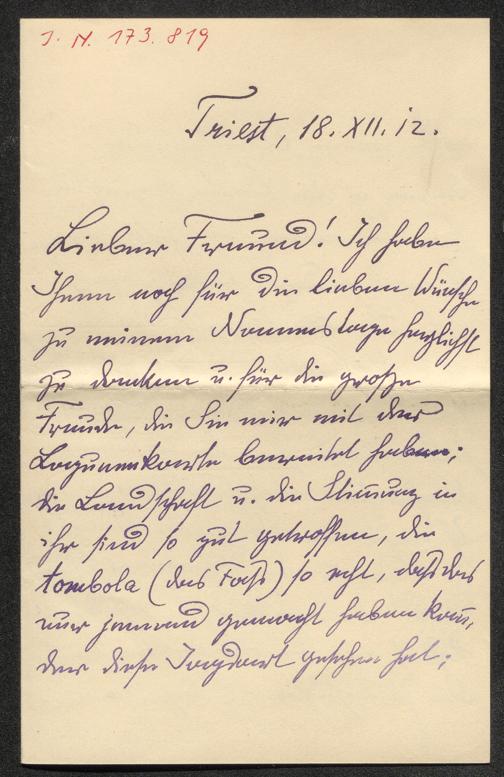 J. N. 173.819
Triest, 18. XII. 12.
Lieber Freund! Ich habe
Ihnen noch für die lieben Wünsche
zu meinem Namenstage herzlichst
zu danken u. für die große
Freude, die Sie mir mit der
Lagunenkarte bereitet haben;
die Landschaft u. die Stimmung in
ihr sind so gut getroffen, die
tombola (das Faß) so echt, daß das
nur jemand gemacht haben kann,
der diese Jagdart gesehen hat;